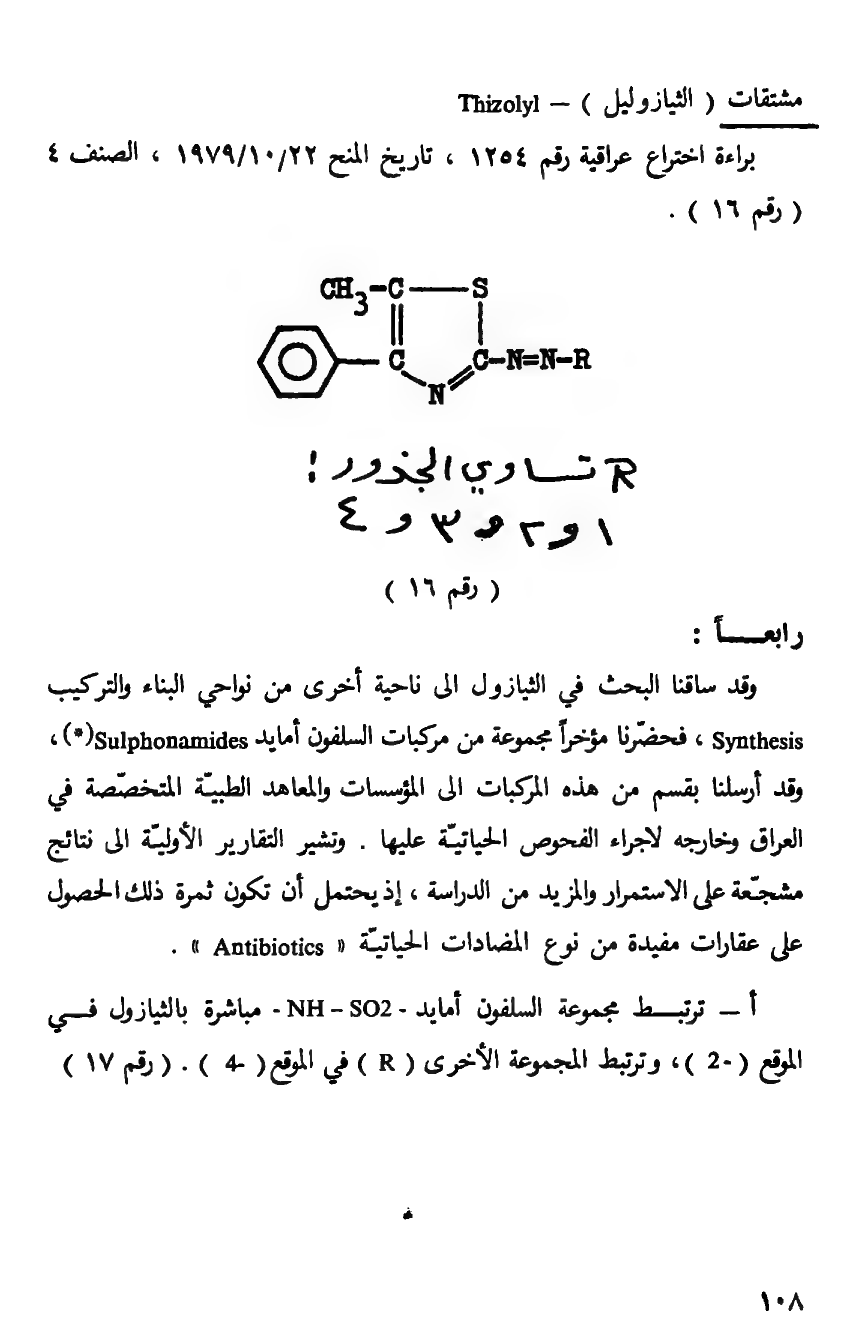 مشتقات ( الثيازوليل ) – Thizolyl
براءة اختراع عراقية رقم ١٢٥٤ ، تاريخ المنح ١٩٧٩/١٠/٢٢ ، الصنف ٤
( رقم ١٦ ) .
CH3-C S
C C-N=N-R
N
R تساوي الجذور :
١ و ٢ و ٣ و ٤
( رقم ١٦ )
رابعـــاً :
وقد ساقنا البحث في الثيازول الى ناحية أخرى من نواحي البناء والتركيب
Synthesis ، فحضّرنا مؤخراً مجموعة من مركبات السلفون أمايد Sulphonamides(*)،
وقد أرسلنا بقسم من هذه المركبات الى المؤسسات والمعاهد الطبيّة المتخصّصة في
العراق وخارجه لاجراء الفحوص الحياتيّة عليها . وتشير التقارير الأوليّة الى نتائج
مشجّعة على الاستمرار والمزيد من الدراسة ، إذ يحتمل أن تكون ثمرة ذلك الحصول
على عقارات مفيدة من نوع المضادات الحياتيّة « Antibiotics » .
أ – ترتبـــط مجموعة السلفون أمايد - NH – SO2 - مباشرة بالثيازول فـــي
الموقع ( 2- ) ، وترتبط المجموعة الأخرى ( R ) في الموقع ( 4- ) . ( رقم ١٧ )
١٠٨